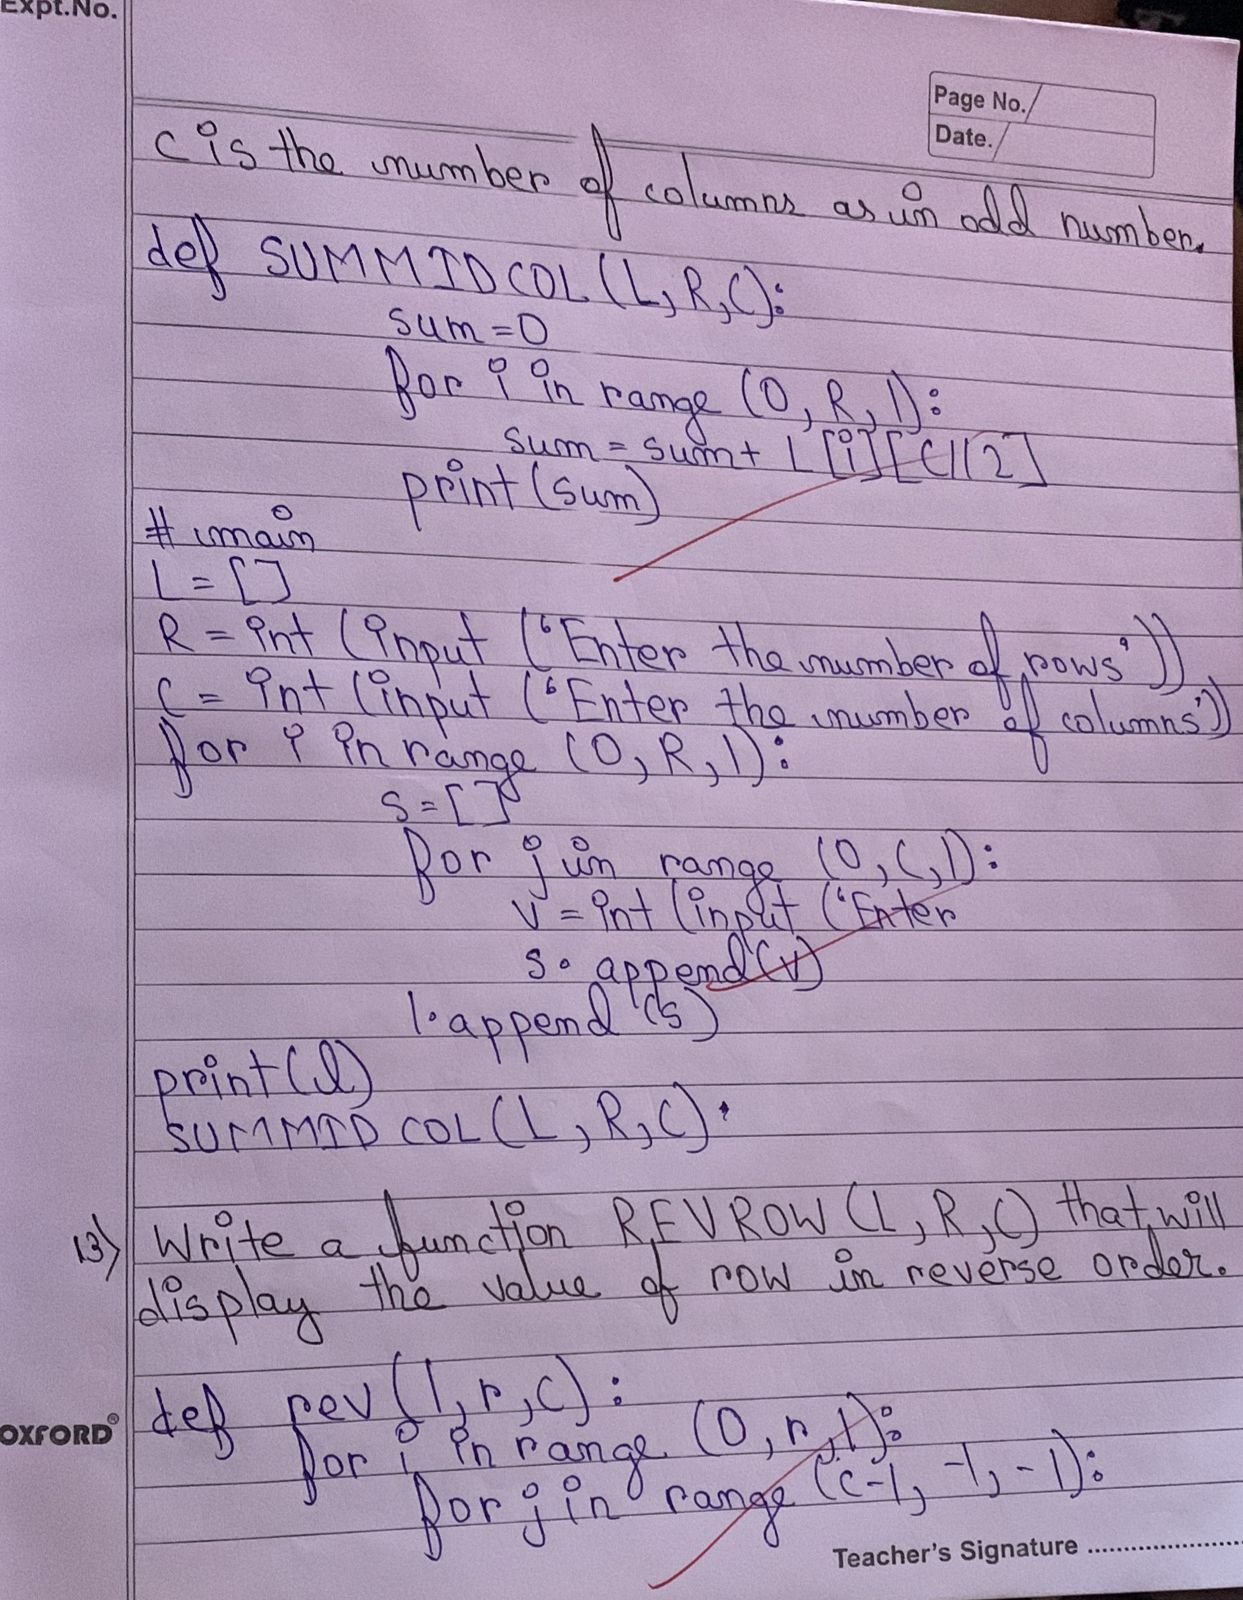 Expt.No.
Page No.
Date.
C is the number of columns as in odd number.
def SUMMIDCOL(L,R,C):
sum=0
for i in range (0,R,1):
sum = sum+ L[i][C//2]
print(sum)
# main
L=[]
R = int (input ('Enter the number of rows'))
C = int (input ('Enter the number of columns'))
for i in range (0,R,1):
s=[]
for j in range (0,C,1):
v = int (input ('Enter
s.append(v)
l.append(s)
print(l)
SUMMIDCOL(L,R,C).
13) Write a function REVROW(L,R,C) that will
display the value of row in reverse order.
def rev(l,r,c):
for i in range (0,r,1):
for j in range (c-1,-1,-1):
OXFORD®
Teacher's Signature ....................